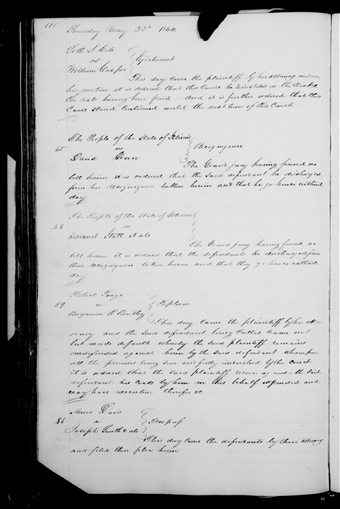 Thursday May 23d 1844
Seth S
vs
William
This day came the plaintiff by his attorney and on
his motion it is ordered that this Cause be
having been paid and it is further ordered that this
Cause stand Continued until the next term of this Court
The People of the State of Illinois
45 vs Recognizance
David
The Grand jury having found no
bill herein it is ordered that the said defendant be discharged
from his Recognizance taken herein and that he go hence without
day
The People of the State of Illinois
46 vs
Samuel et als
The Grand jury having found no
bill herein it is ordered that the defendants be discharged from
their Recognizance taken herein and that they go hence without
day
Robert
59 vs Replevin
Benjamin
This day came the plaintiff by his at-
torney and the said defendant being Called Came not
but made default whereby the said plaintiff remains
undefended against him by the said defendant whereupon
all the premises being seen and fully understood by the court
it is ordered that the said plaintiff recover of and the said
defendant his Costs by him in this behalf expended and
may have execution therefor &c
Amos Davis
86 vs Trespass
Joseph Smith et als
This day came the defendants by their attorney
and filed their plea herein